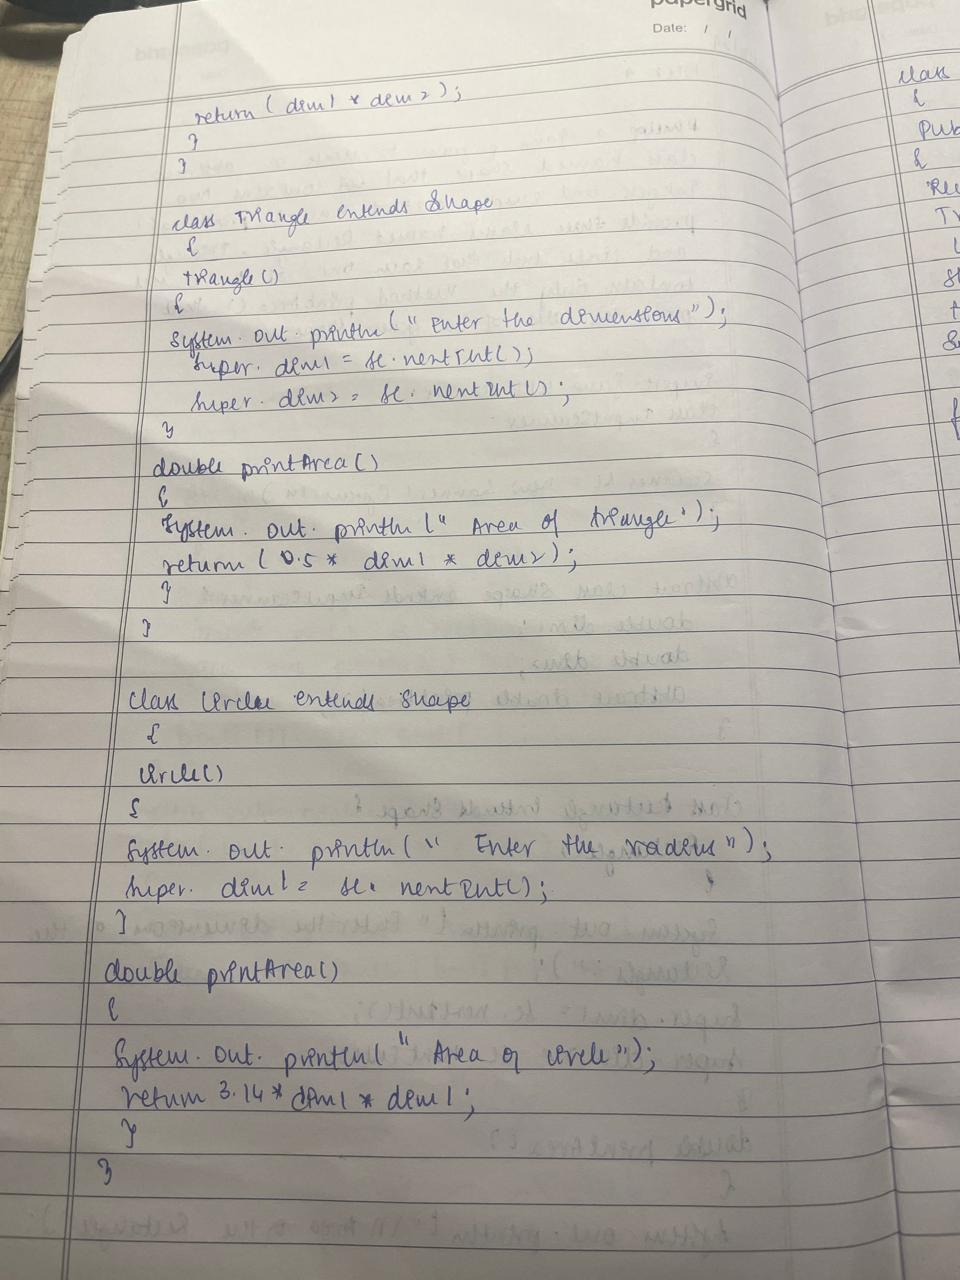 papergrid
Date: / /
return ( dim1 * dim2 );
}
}
class Triangle extends Shape
{
triangle()
{
System. out. println ( " Enter the dimensions " );
Super. dim1 = sc. nextInt();
Super. dim2 = sc. nextInt();
}
double printArea()
{
System. out. println (" Area of triangle");
return ( 0.5 * dim1 * dim2 );
}
}
class Circle extends Shape
{
circle()
{
System. out. println ( " Enter the radius " );
Super. dim1 = sc. nextInt();
}
double printArea()
{
System. out. println( " Area of circle ");
return 3.14 * dim1 * dim1 ;
}
}
class
{
Pub
{
Rec
Tr